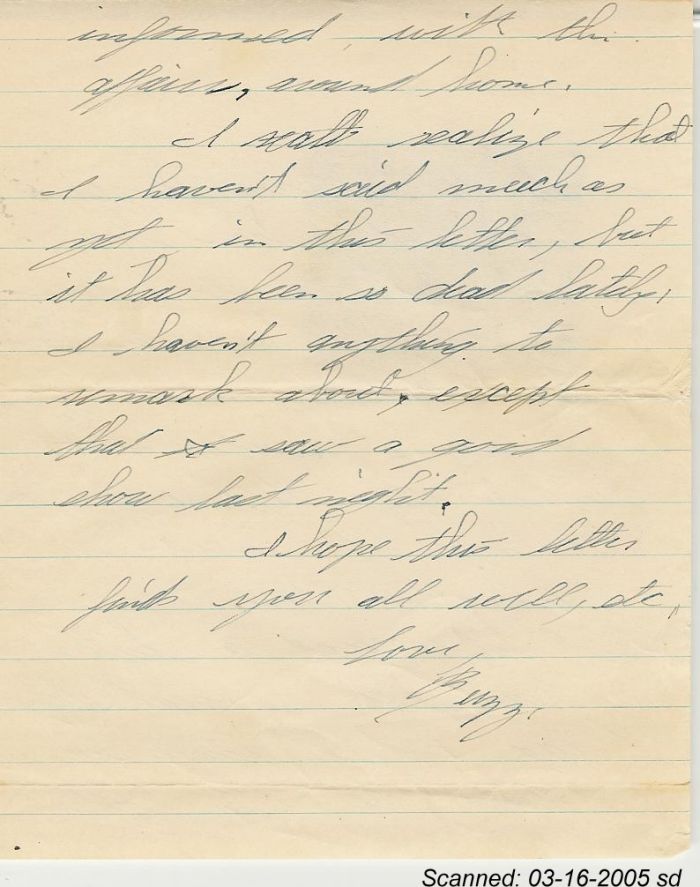 informed, with the
affairs, around home.
I really realize that
I haven't said much as
yet in this letter, but
it has been so dead lately,
I haven't anything to
remark about, except
that I saw a good
show last night.
I hope this letter
finds you all well, etc,
Love,
Buzz.
Scanned: 03-16-2005 sd